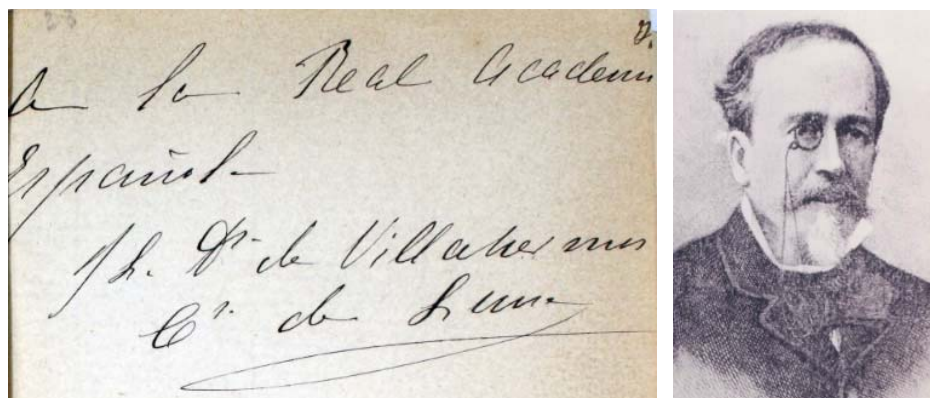 23
A la Real Academi
Español
La Dsa de Villahermos
Csa de Luna